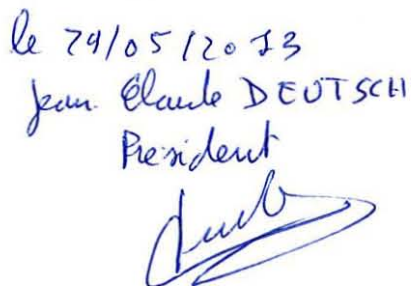 le 29/05/2013
Jean Claude DEUTSCH
Président